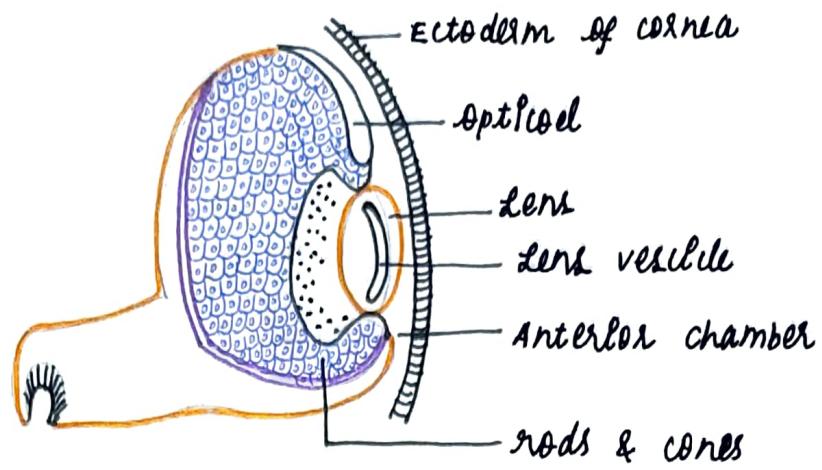 Ectoderm of cornea
opticoel
Lens
Lens vescicle
Anterior chamber
rods & cones